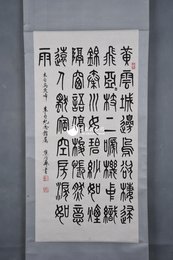 黃雲城邊烏欲棲歸
飛啞啞枝上啼機中織
錦秦川女碧紗如煙
隔窗語停梭悵然憶
遠人獨宿空房淚如
雨